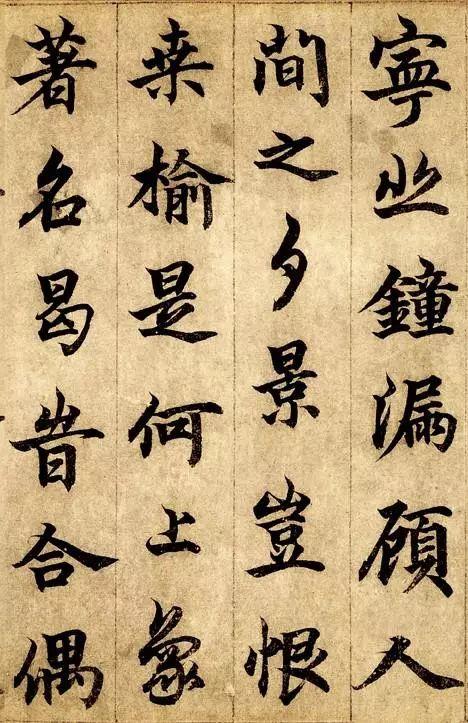 寧鐘漏顧人
間之夕景豈恨
桒榆是何上象
著名曷旹合偶